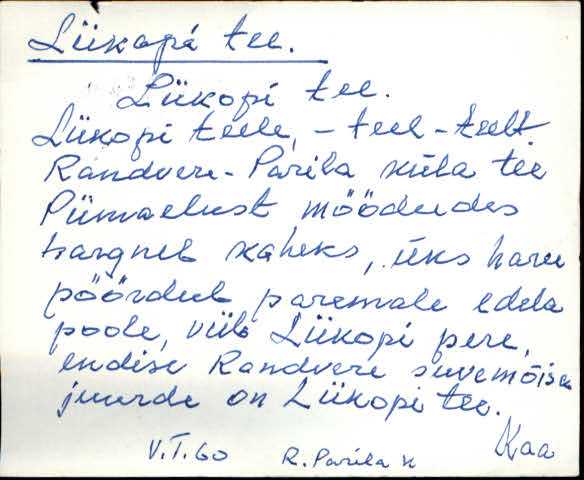 Liikopi tee.
Liikopi tee.
Liikopi teele, - teel - teelt
Randvere - Parila küla tee
Piimaelust möödudes
hargneb kaheks, üks haru
pöördub paremale edela
poole, viib Liikopi pere,
endise Randvere suvemõisa
juurde on Liikopi tee.
Kaa
V.T. 60 R. Parila k